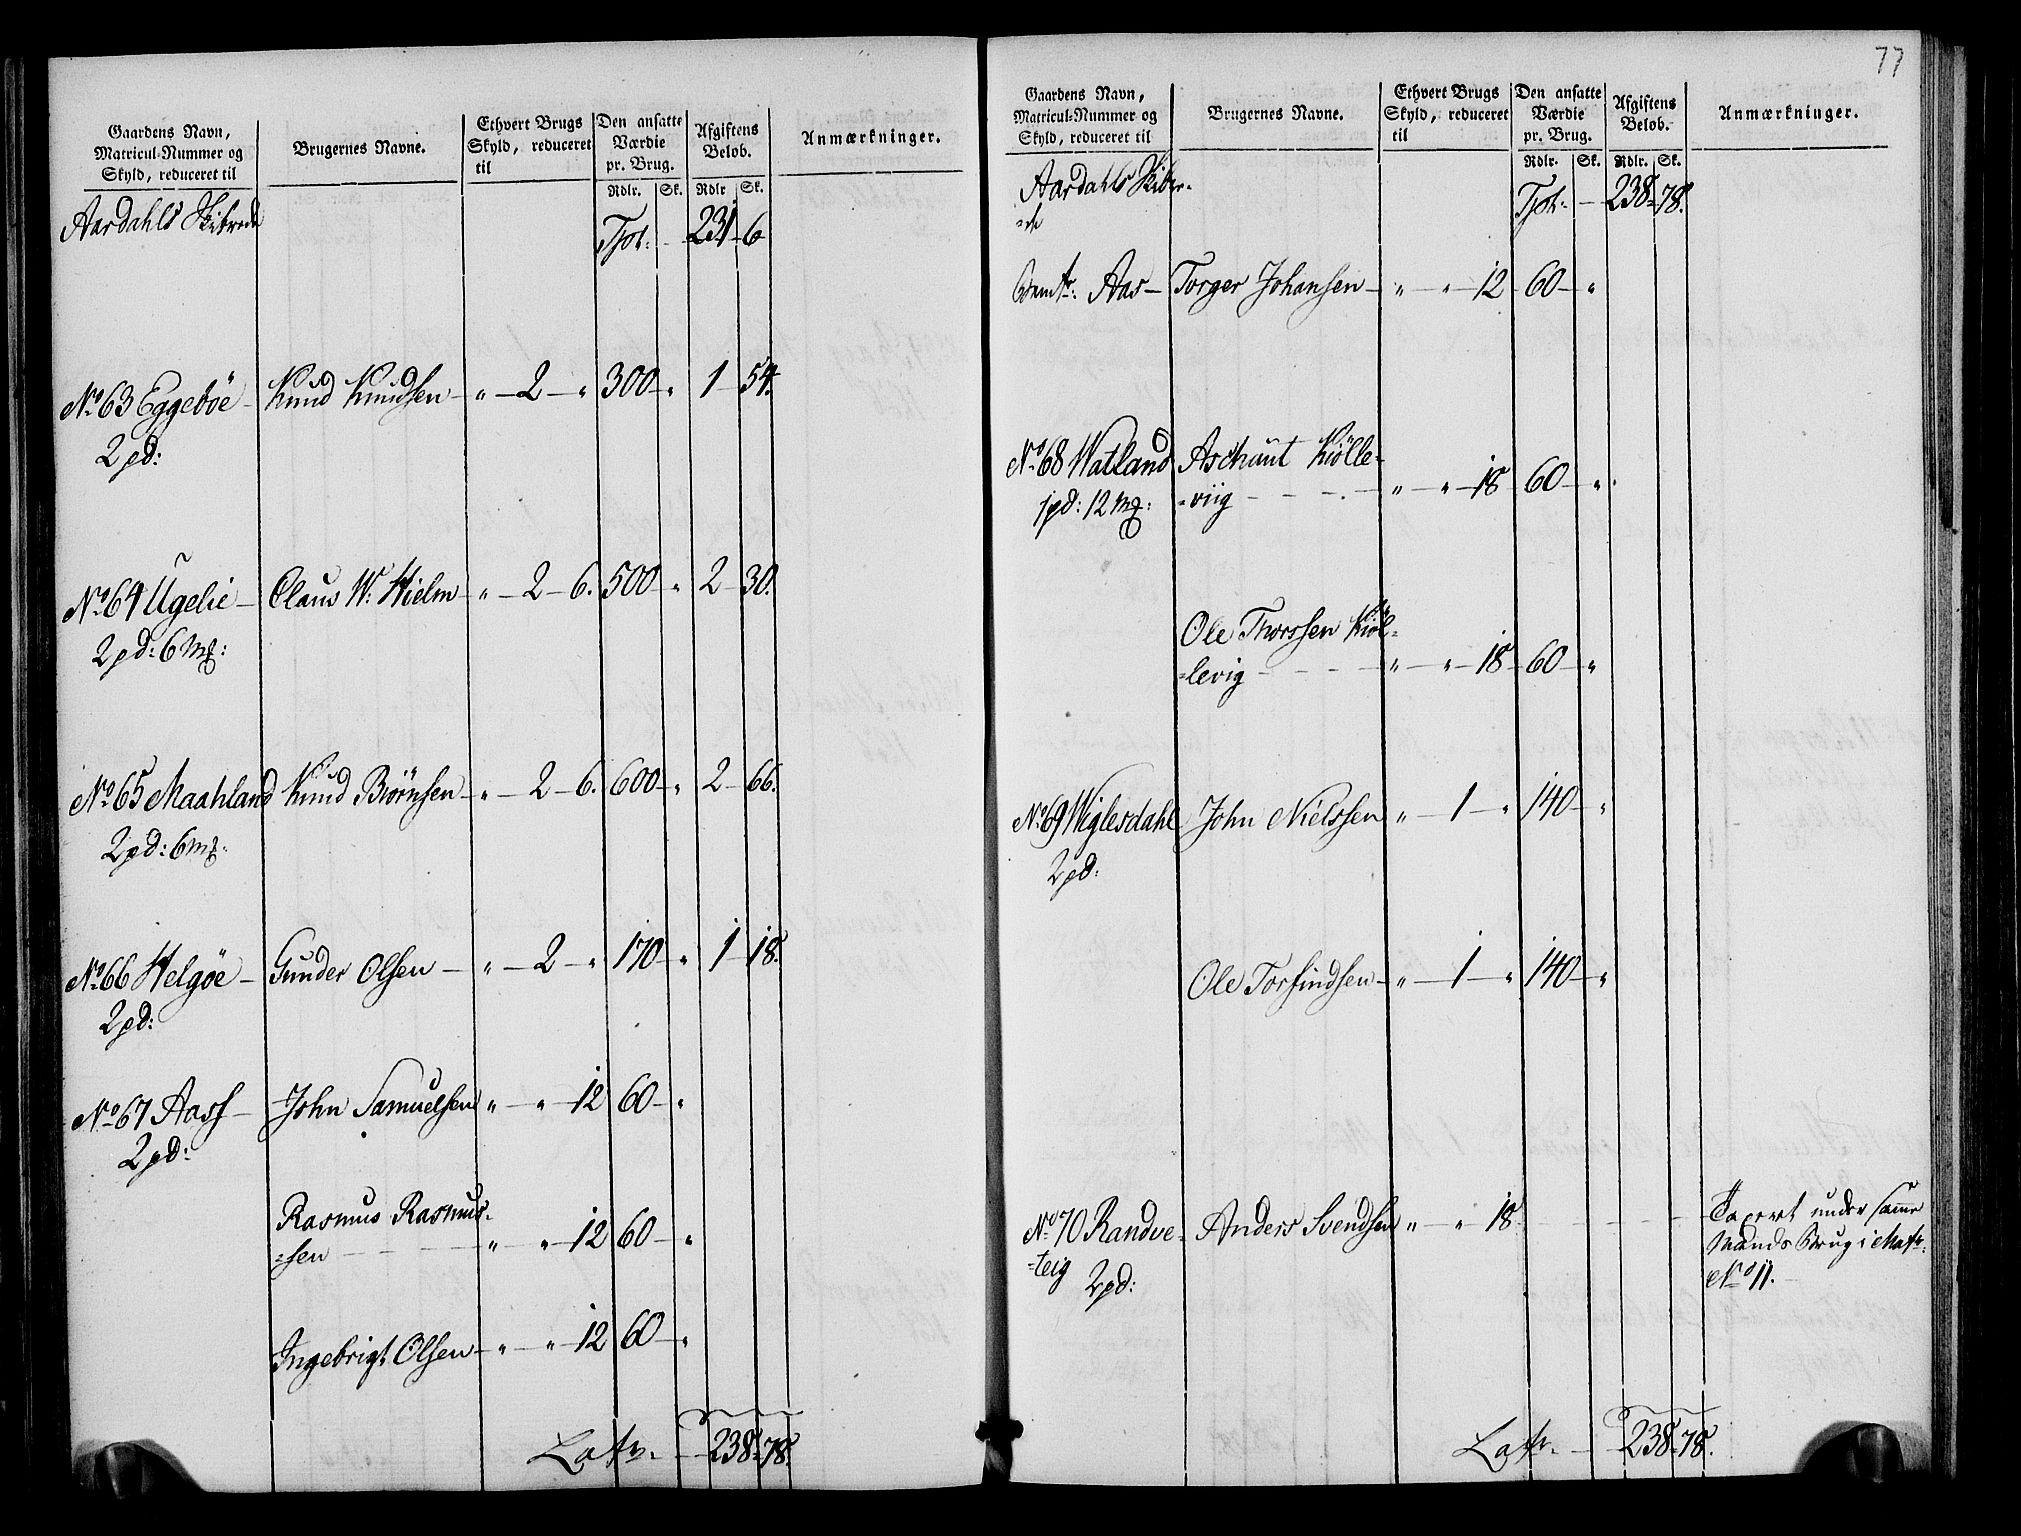 Gaardens Navn,
Matricul-Nummer og
Skyld, reduceret til
Brugernes Navne.
Ethvert Brugs
Skyld, reduceret
til
Den ansatte
Værdie
pr. Brug.
Afgiftens
Beløb.
Anmærkninger.
Rdlr. Sk. Rdlr Sk.
Aardahls Skibrede Tpt: 231 6
No 63 Eggebøe Knud Knudsen " 2 " 300 " 1 54.
2 pd:
No 64 Ugelie Claus W: Hielm " 2 6. 500 " 2 30.
2 pd: 6 mk:
No 65 Maahland Knud Biørnsen " 2 6. 600 " 2 66.
2 pd: 6 mk.
No 66 Helgøe Gunder Olsen " 2 " 170 " 1 18.
2 pd:
No 67 Aass John Samuelsen " " 12 60 "
2 pd:
Rasmus Rasmus-
-sen " " 12 60 "
Ingebrigt Olsen " " 12 60 "
Latr. 238 78.
77
Gaardens Navn,
Matricul-Nummer og
Skyld, reduceret til
Brugernes Navne.
Ethvert Brugs
Skyld, reduceret
til
Den ansatte
Værdie
pr. Brug.
Afgiftens
Beløb.
Anmærkninger.
Rdlr. Sk. Rdlr. Sk.
Aardahls Skibre-
-de Tpt: 238 78.
Aas Torger Johansen " " 12 60 "
No 68 Watland Aschaut Kiølle-
1 pd: 12 mk: -viig " " 18 60 "
Ole Thorssen Kiøl-
-levig " " 18 60 "
No 69 Wiglesdahl John Nielssen " 1 " 140 "
2 pd.
Ole Torfindsen " 1 " 140 "
No 70 Randve- Anders Svendsen " " 18 Taxeret under samme
-teig Mands Brug i Matr:
2 pd: No 11.
Latr. 238 78.